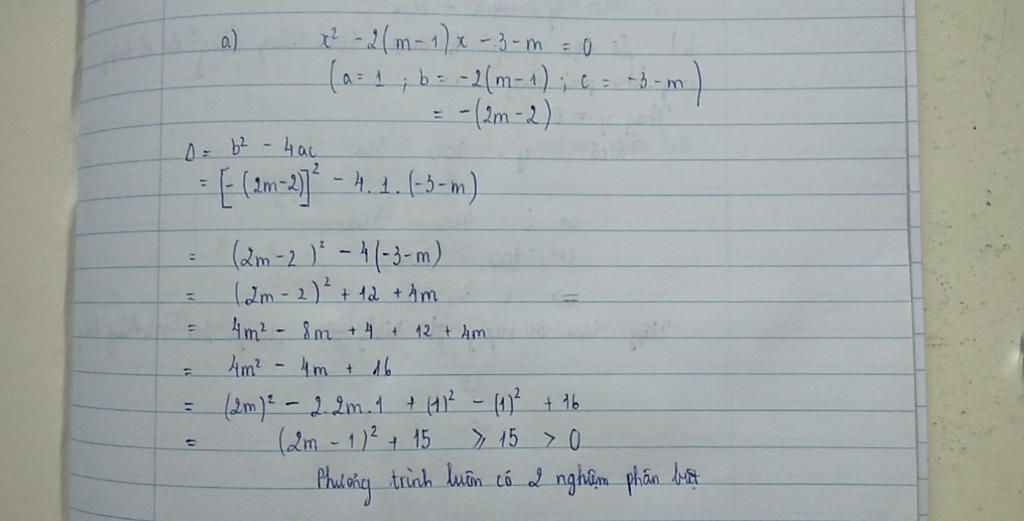 a) x² - 2(m-1)x - 3 - m = 0
(a = 1 ; b = -2(m-1) ; c = -3-m)
= -(2m-2)
Δ = b² - 4ac
= [-(2m-2)]² - 4.1.(-3-m)
= (2m-2)² - 4(-3-m)
= (2m-2)² + 12 + 4m
= 4m² - 8m + 4 + 12 + 4m
= 4m² - 4m + 16
= (2m)² - 2.2m.1 + (1)² - (1)² + 16
= (2m-1)² + 15 ⩾ 15 > 0
Phương trình luôn có 2 nghiệm phân biệt